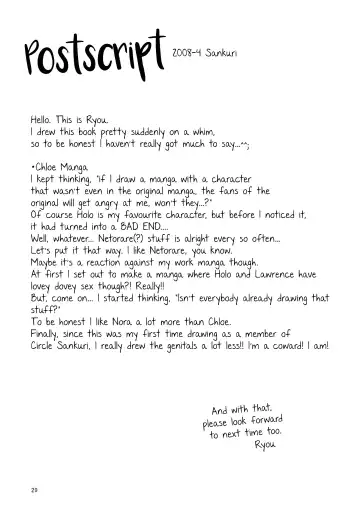 Postscript
2008-4 Sankuri
Hello. This is Ryou.
I drew this book pretty suddenly on a whim,
so to be honest I haven't really got much to say...^^;
•Chloe Manga
I kept thinking, "If I draw a manga with a character
that wasn't even in the original manga, the fans of the
original will get angry at me, won't they...?"
Of course Holo is my favourite character, but before I noticed it,
it had turned into a BAD END....
Well, whatever... Netorare(?) stuff is alright every so often...
Let's put it that way. I like Netorare, you know.
Maybe it's a reaction against my work manga though.
At first I set out to make a manga where Holo and Lawrence have
lovey dovey sex though?! Really!!
But, come on... I started thinking, "Isn't everybody already drawing that
stuff?"
To be honest I like Nora a lot more than Chloe.
Finally, since this was my first time drawing as a member of
Circle Sankuri, I really drew the genitals a lot less!! I'm a coward! I am!
And with that,
please look forward
to next time too.
Ryou
29